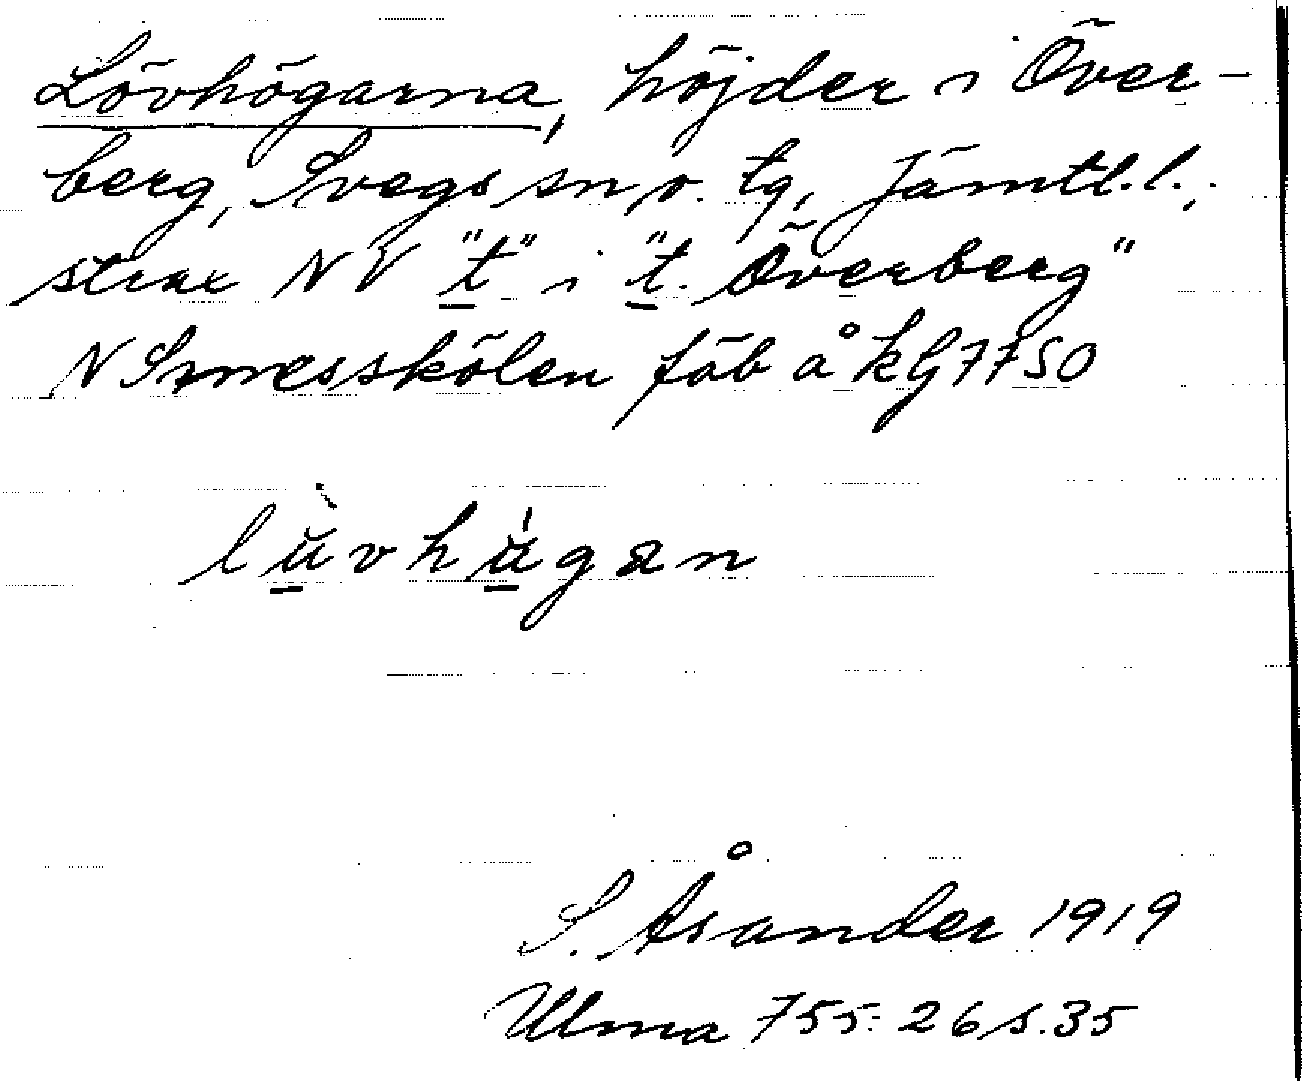 Lövhögarna, höjder i Över-
berg, Svegs sn o. tg, Jämtl. l.,
strax NV "t" i "t. Överberg"
N Smesskölen fäb å kG7750
lùvhúgan
S. Åsander 1919
Ulma 755:26 s. 35